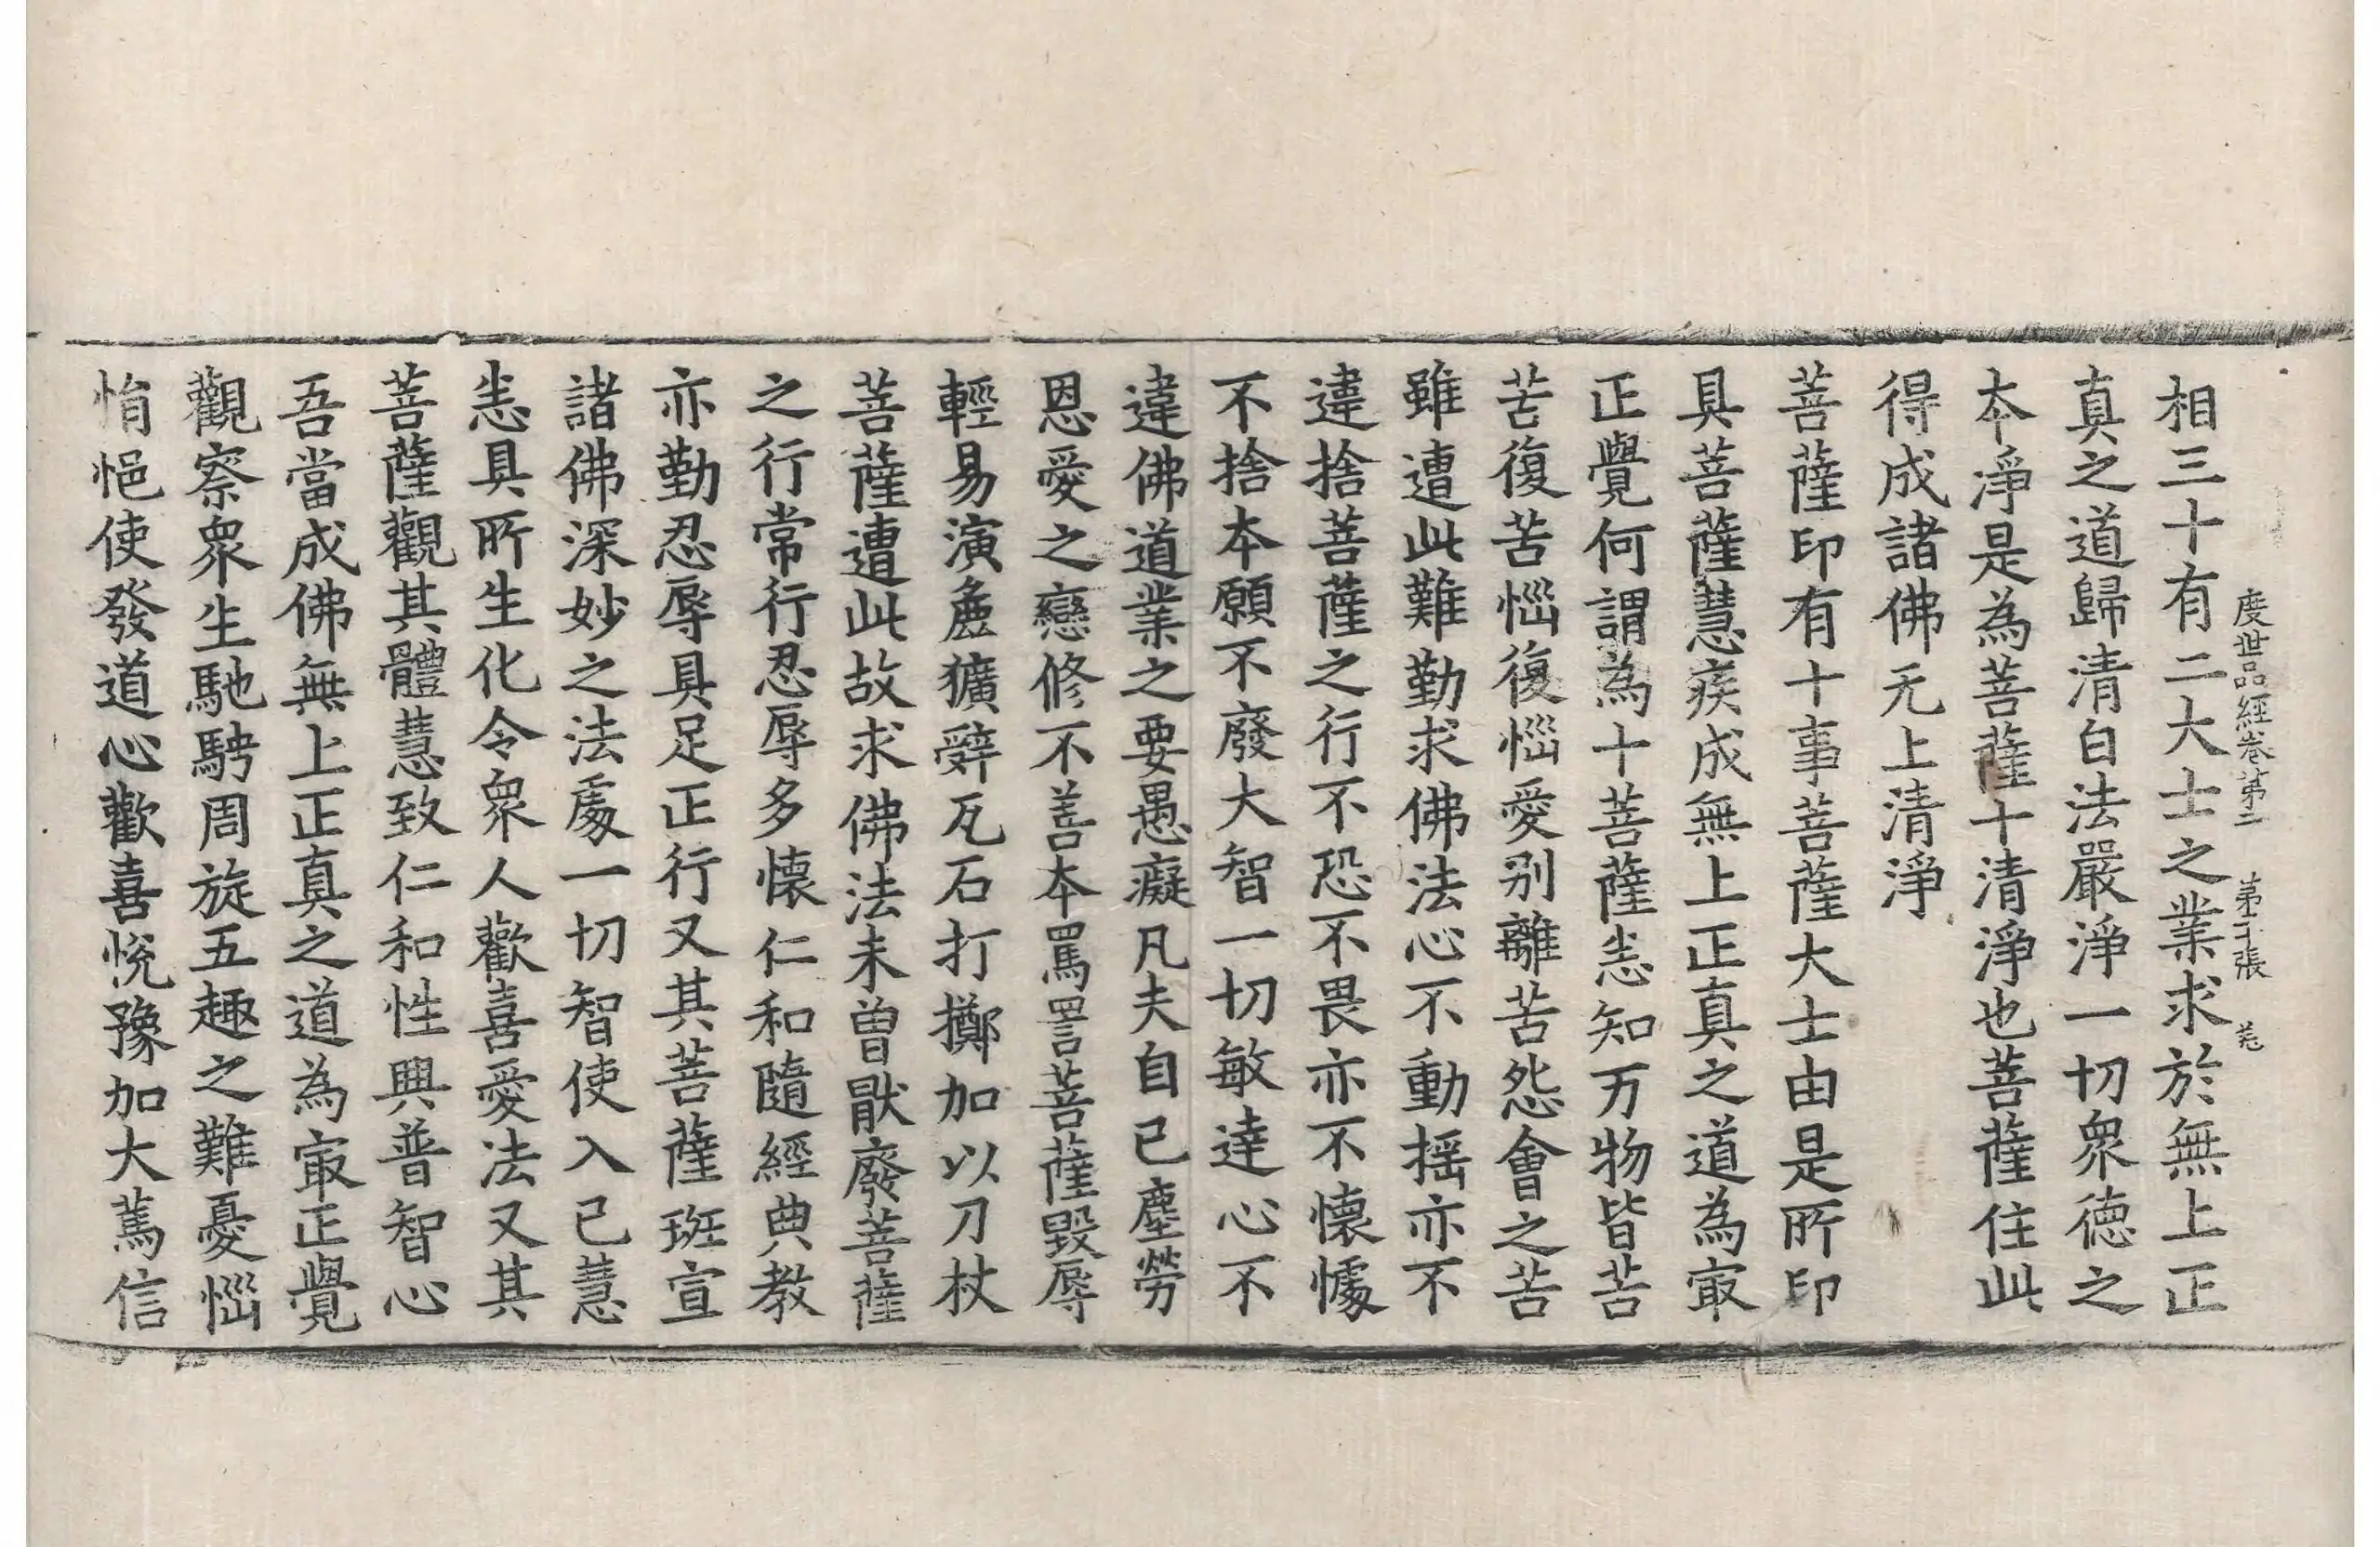 度世品經卷第二　第二十張　羗
相三十有二大士之業求於無上正
真之道歸清白法嚴淨一切衆德之
本淨是為菩薩十清淨也菩薩住此
得成諸佛无上清淨
菩薩印有十事菩薩大士由是所印
具菩薩慧疾成無上正真之道為㝡
正覺何謂為十菩薩恙知万物皆苦
苦復苦惱復惱愛别離苦怨會之苦
雖遭此難勤求佛法心不動揺亦不
違捨菩薩之行不恐不畏亦不懷懅
不捨本願不廢大智一切敏達心不
違佛道業之要愚癡凡夫自已塵勞
恩愛之戀修不善本罵詈菩薩毀辱
輕易演麁獷辝瓦石打擲加以刀杖
菩薩遭此故求佛法未曾猒廢菩薩
之行常行忍辱多懷仁和隨經典教
亦勤忍辱具足正行又其菩薩班宣
諸佛深妙之法處一切智使入已慧
恙具所生化令衆人歡喜愛法又其
菩薩觀其體慧致仁和性興普智心
吾當成佛無上正真之道為㝡正覺
觀察衆生馳騁周旋五趣之難憂惱
悁悒使發道心歡喜悅豫加大篤信